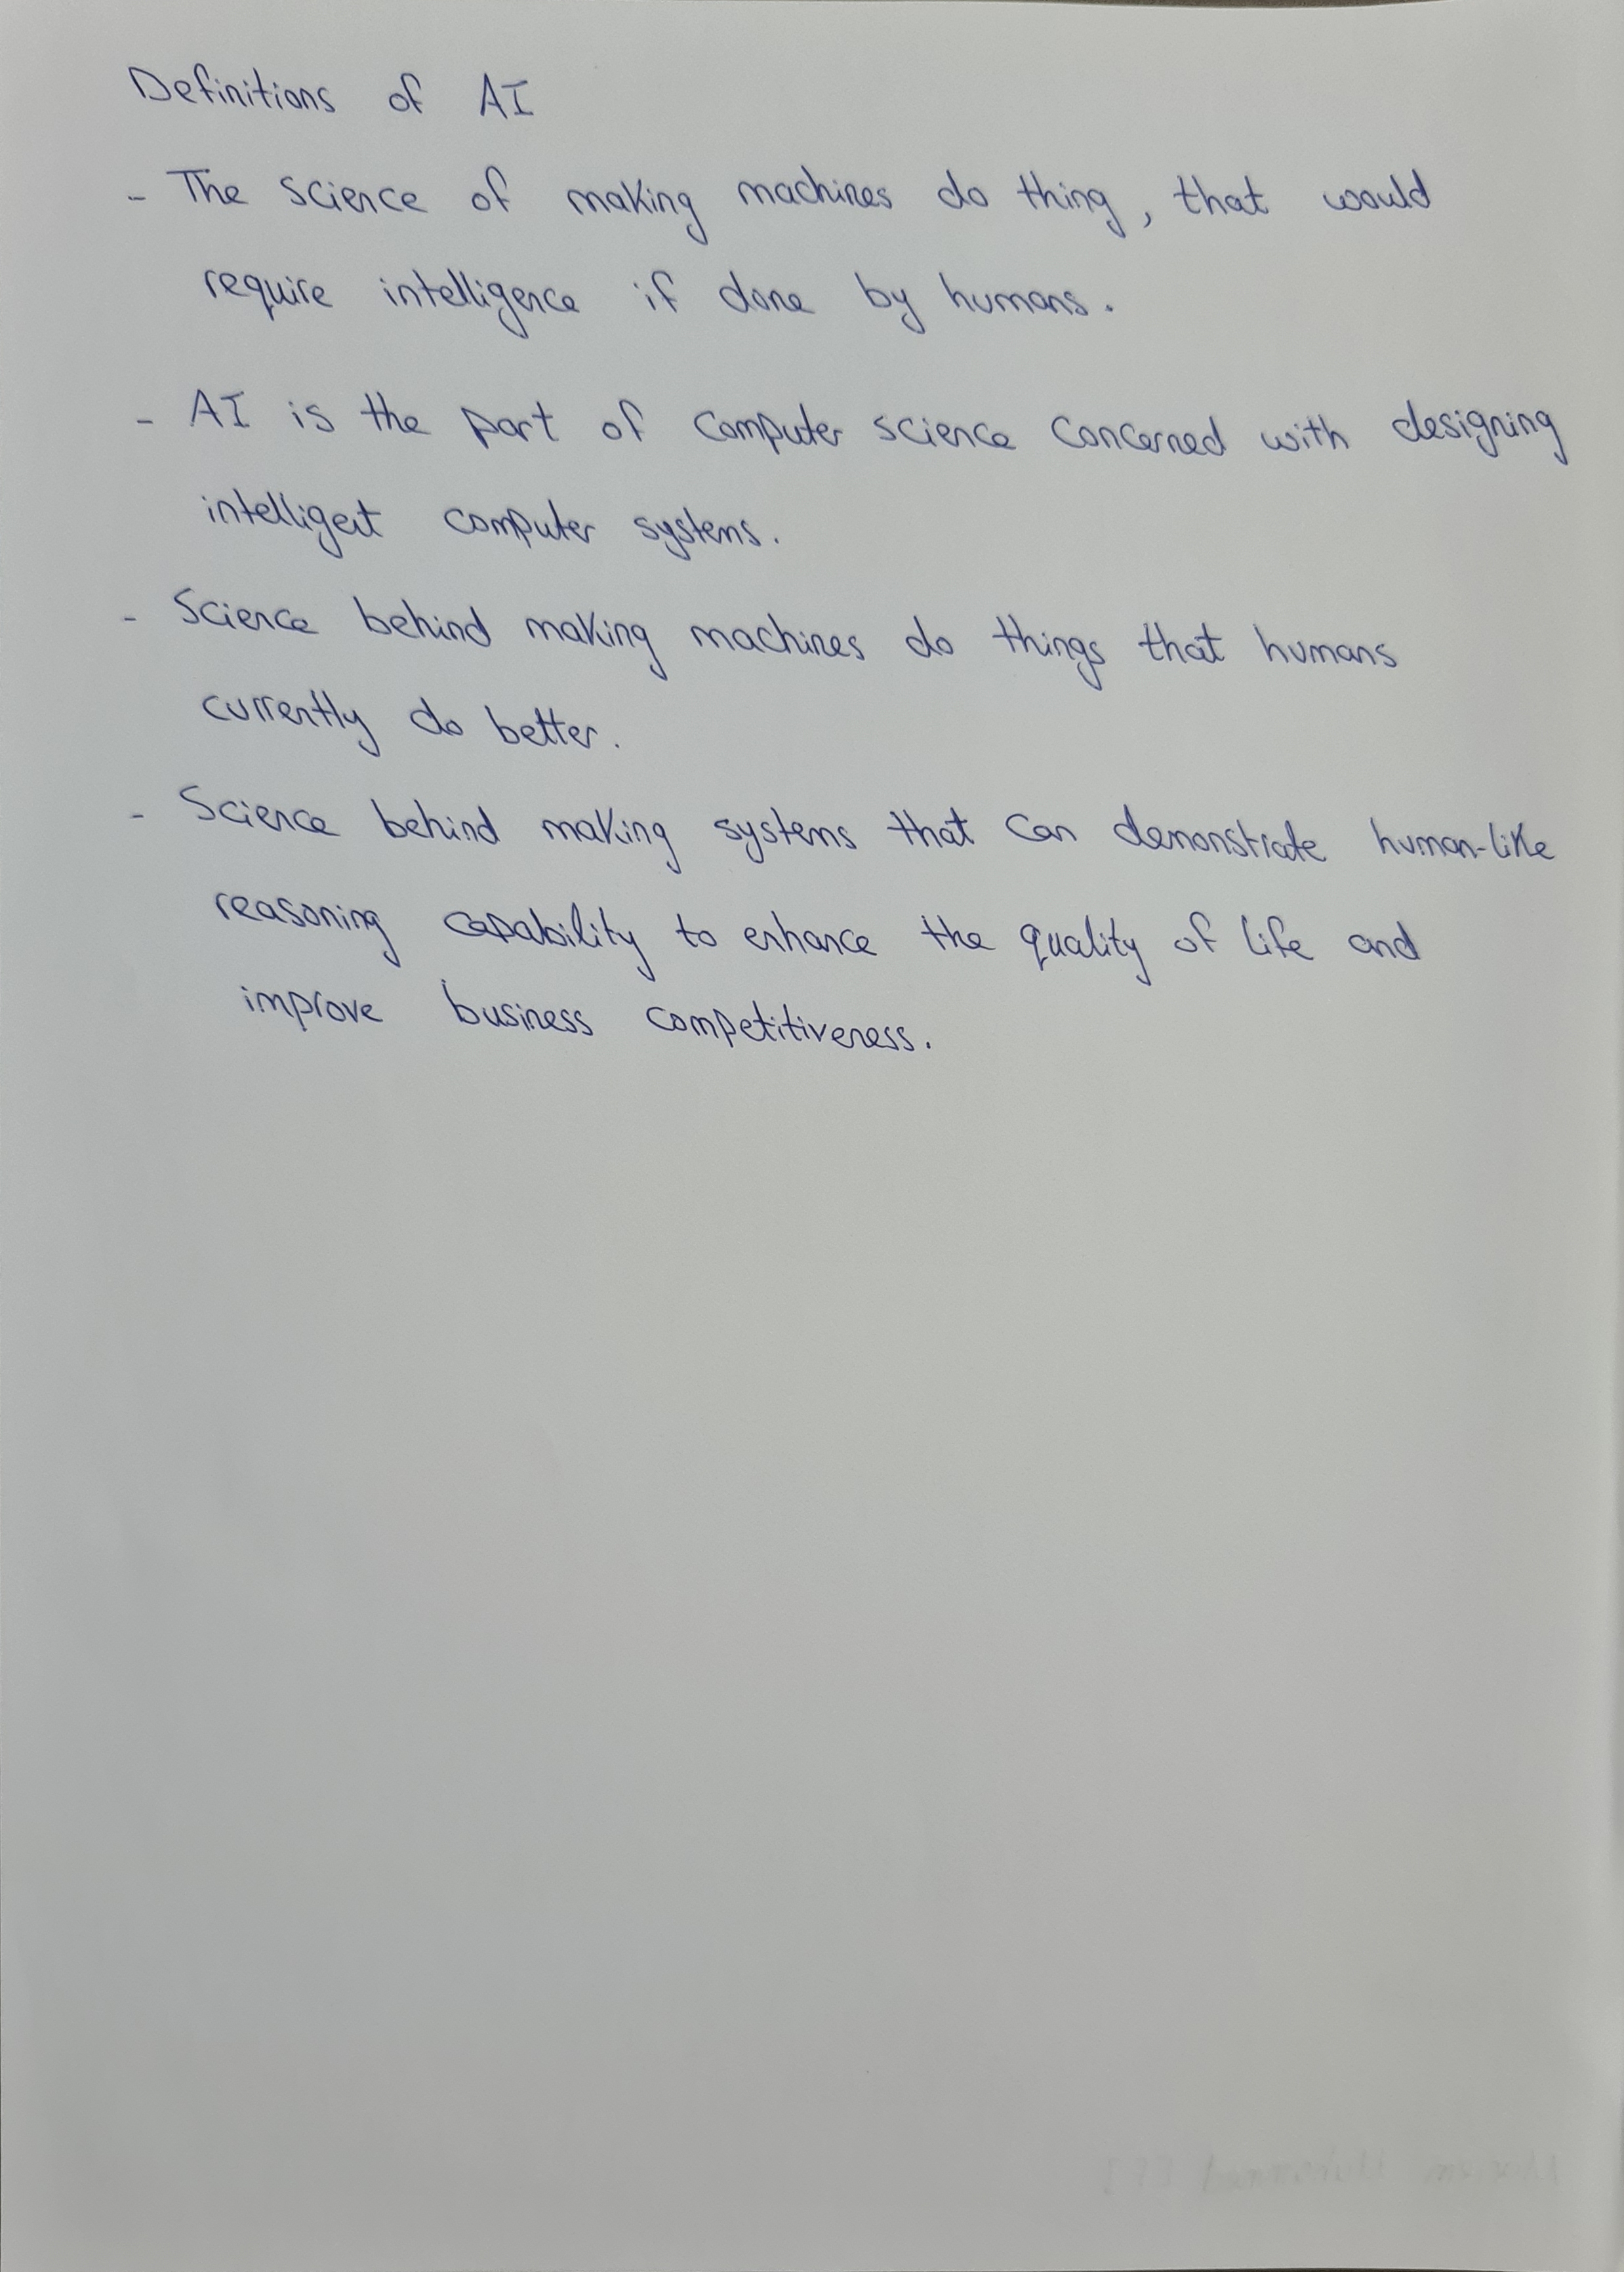 Definitions of AI
- The science of making machines do thing, that would
require intelligence if done by humans.
- AI is the part of computer science concerned with designing
intelligent computer systems.
- Science behind making machines do things that humans
currently do better.
- Science behind making systems that can demonstrate human-like
reasoning capability to enhance the quality of life and
improve business competitiveness.